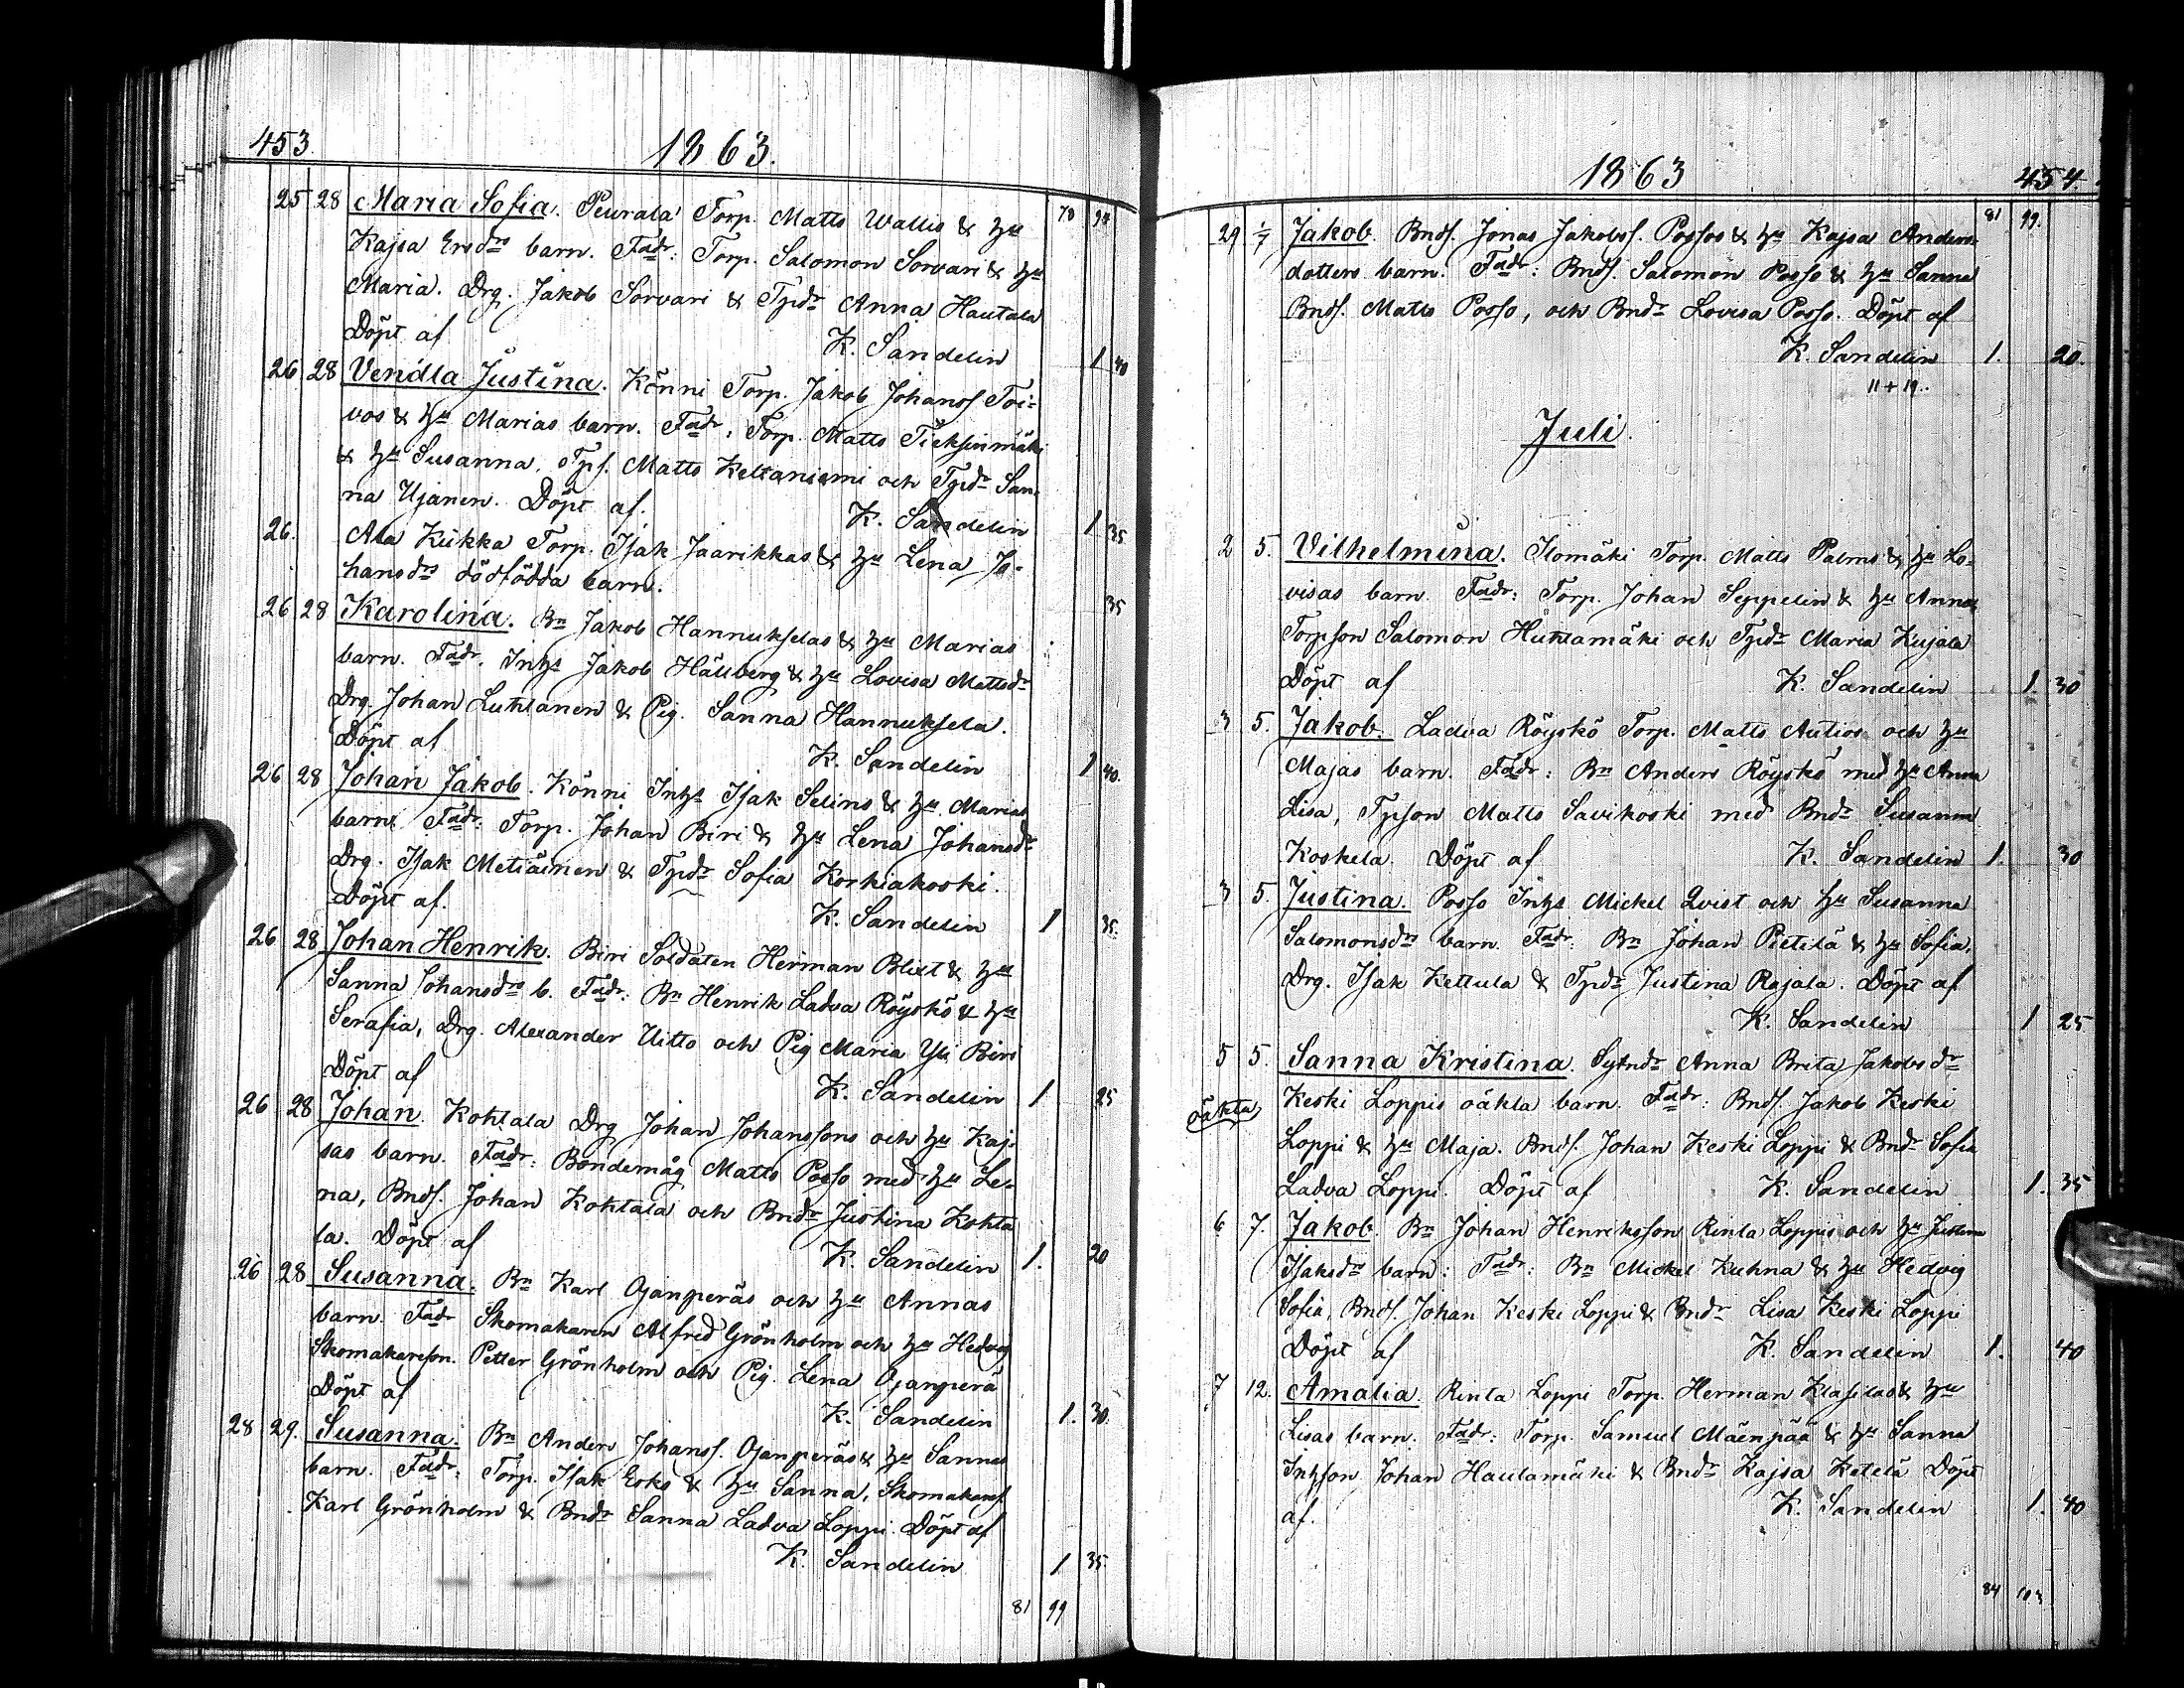 453.
1863.
78 94
25 28 Maria Sofia. Peurala Torp. Matts Wallis & hu
Kajsa Ersdrs barn. Fadr: Torp. Salomon Sorvari & hu
Maria. Drg. Jakob Sorvari & Tpdr Anna Hautala
Döpt af K. Sandelin 1 40
26 28 Vendla Justina. Könni Torp. Jakob Johanss. Toi-
vos & hu Marias barn. Fadr: Torp. Matts Tieksinmäki
& hu Susanna. Tps. Matts Keltaniemi och Tpdr San-
na Ujanen. Döpt af. K. Sandelin 1 35
26. Ala Kukka Torp. Isak Jaarikkas & hu Lena Jo-
hansdrs dödfödda barn. 35
26 28 Karolina. Bn Jakob Hannukselas & hu Marias
barn. Fadr. Inhs Jakob Hällberg & hu Lovisa Mattsdr
Drg. Johan Luhtanen & Pig. Sanna Hannuksela.
Döpt af K. Sandelin 1 40.
26 28 Johan Jakob. Könni Inhs Isak Selins & hu Marias
barn. Fadr: Torp. Johan Biri & hu Lena Johansdr
Drg. Isak Metiäinen & Tpdr Sofia Korkiakoski.
Döpt af. K. Sandelin 1 35
26 28 Johan Henrik. Biri Soldaten Herman Blixt & hu
Sanna Johansdrs b. Fadr: Bn Henrik Ladva Röyskö & hu
Serafia, Drg. Alexander Uitto och Pig Maria Yli Biri
Döpt af K. Sandelin 1 25
26 28 Johan. Kohtala Drg Johan Johanssons och hu Kaj-
sas barn. Fadr: Bondemåg Matts Posso med hu Le-
na, Bnds. Johan Kohtala och Bndr Justina Kohta
la. Döpt af K. Sandelin 1. 20
26 28 Susanna. Bn Karl Ojanperäs och hu Annas
barn. Fadr Skomakaren Alfred Grönholm och hu Hedvig
Skomakareson. Petter Grönholm och Pig. Lena Ojanperä
Döpt af K. Sandelin 1. 30.
28 29. Susanna. Bn Anders Johanss. Ojanperäs & hu Sannas
barn. Fadr: Torp. Isak Erks & hu Sanna, Skomakares.
Karl Grönholm & Bndr Sanna Ladva Loppi. Döpt af
K. Sandelin 1 35
81 99
1863
454.
81 99.
29 1/7 Jakob. Bnds. Jonas Jakobss. Possos & hu Kajsa Anders-
dotters barn. Fadr: Bnds. Salomon Posso & hu Sanna
Bnds. Matts Posso, och Bndr Lovisa Posso. Döpt af
K. Sandelin 1. 20.
11 + 19.
Juli.
2 5. Vilhelmina. Ilomäki Torp. Matts Palms & hu Lo-
visas barn. Fadr: Torp. Johan Seppelin & hu Anna
Torpson Salomon Huhtamäki och Tpdr Maria Kujala
Döpt af K. Sandelin 1. 30
3 5. Jakob. Ladva Röyskö Torp. Matts Autios och hu
Majas barn. Fadr: Bn Anders Röyskö med hu Anna
Lisa, Tpson Matts Savikoski med Bndr Susanna
Koskela. Döpt af K. Sandelin 1. 30
3 5. Justina. Posso Inhs Mickel Qvist och hu Susanna
Salomonsdrs barn. Fadr: Bn Johan Pietilä & hu Sofia,
Drg. Isak Kettula & Tpdr Justina Rajala. Döpt af
K. Sandelin 1 25
5 5. Sanna Kristina. Sytndr Anna Brita Jakobsdr
oäkta Keski Loppis oäkta barn. Fadr: Bnds. Jakob Keski
Loppi & hu Maja. Bnds. Johan Keski Loppi & Bndr Sofia
Ladva Loppi. Döpt af K. Sandelin 1. 35
6 7. Jakob. Bn Johan Henriksson Rinta Loppis och hu Justina
Isaksdrs barn: Fadr: Bn Mickel Kuhna & hu Hedvig
Sofia, Bnds. Johan Keski Loppi & Bndr Lisa Keski Loppi
Döpt af K. Sandelin 1. 40
7 12. Amalia. Rinta Loppi Torp. Herman Klasilas & hu
Lisas barn. Fadr: Torp. Samuel Mäenpää & hu Sanna
Inhson Johan Hautamäki & Bndr Kajsa Ketelä Döpt
af. K. Sandelin 1. 40
84 103